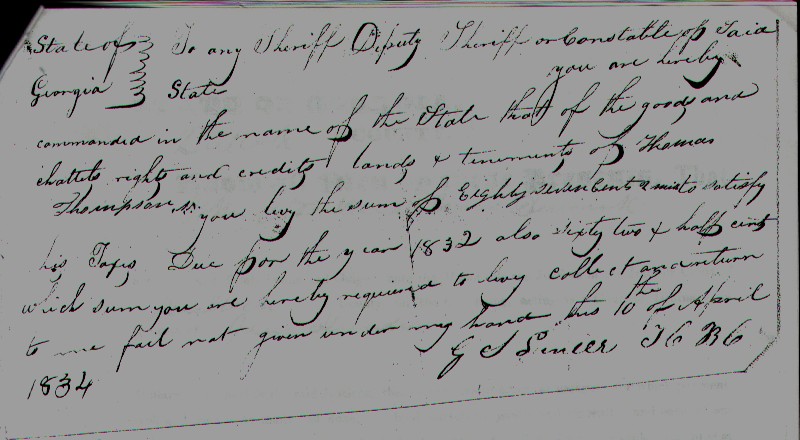 State of To any Sheriff Deputy Sheriff or Constable of Said
Georgia State you are hereby
commanded in the name of the State that of the goods and
chattels rights and credits lands & tenements of Thomas
Thompson Sr. you levy the sum of Eighty seven cents & mi to satisfy
his Taxes Due for the year 1832 also sixty two & half cents
which sum you are hereby required to levy collect and return
to me fail not given under my hand this 10th of April
1834 G S Spencer T C B C